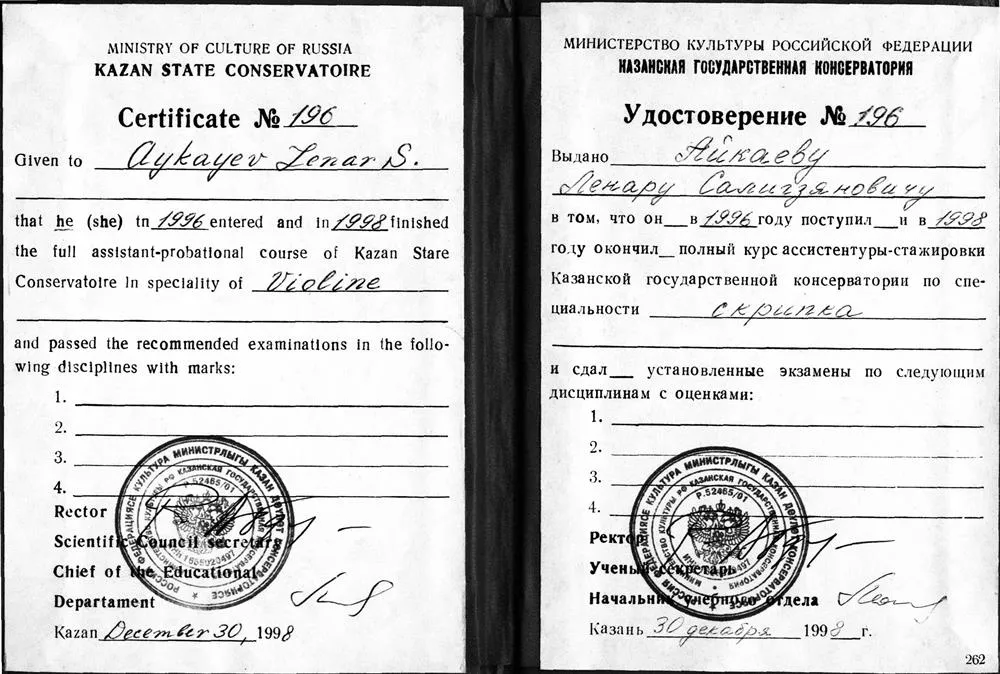 MINISTRY OF CULTURE OF RUSSIA
KAZAN STATE CONSERVATOIRE
Certificate № 196
Given to Aykayev Lenar S.
that he (she) tn 1996 entered and in 1998 finished
the full assistant-probational course of Kazan Stare
Conservatoire in speciality of Violine
and passed the recommended examinations in the follo-
wing disciplines with marks:
1.
2.
3.
4.
Rector
Scientific Council secretary
Chief of the Educational
Departament
Kazan December 30, 1998
МИНИСТЕРСТВО КУЛЬТУРЫ РОССИЙСКОЙ ФЕДЕРАЦИИ
КАЗАНСКАЯ ГОСУДАРСТВЕННАЯ КОНСЕРВАТОРИЯ
Удостоверение № 196
Выдано Айкаеву
Ленару Салигзяновичу
в том, что он в 1996 году поступил и в 1998
году окончил полный курс ассистентуры-стажировки
Казанской государственной консерватории по спе-
циальности скрипка
и сдал установленные экзамены по следующим
дисциплинам с оценками:
1.
2.
3.
4.
Ректор
Ученый секретарь
Начальник учебного отдела
Казань 30 декабря 1998 г.
262